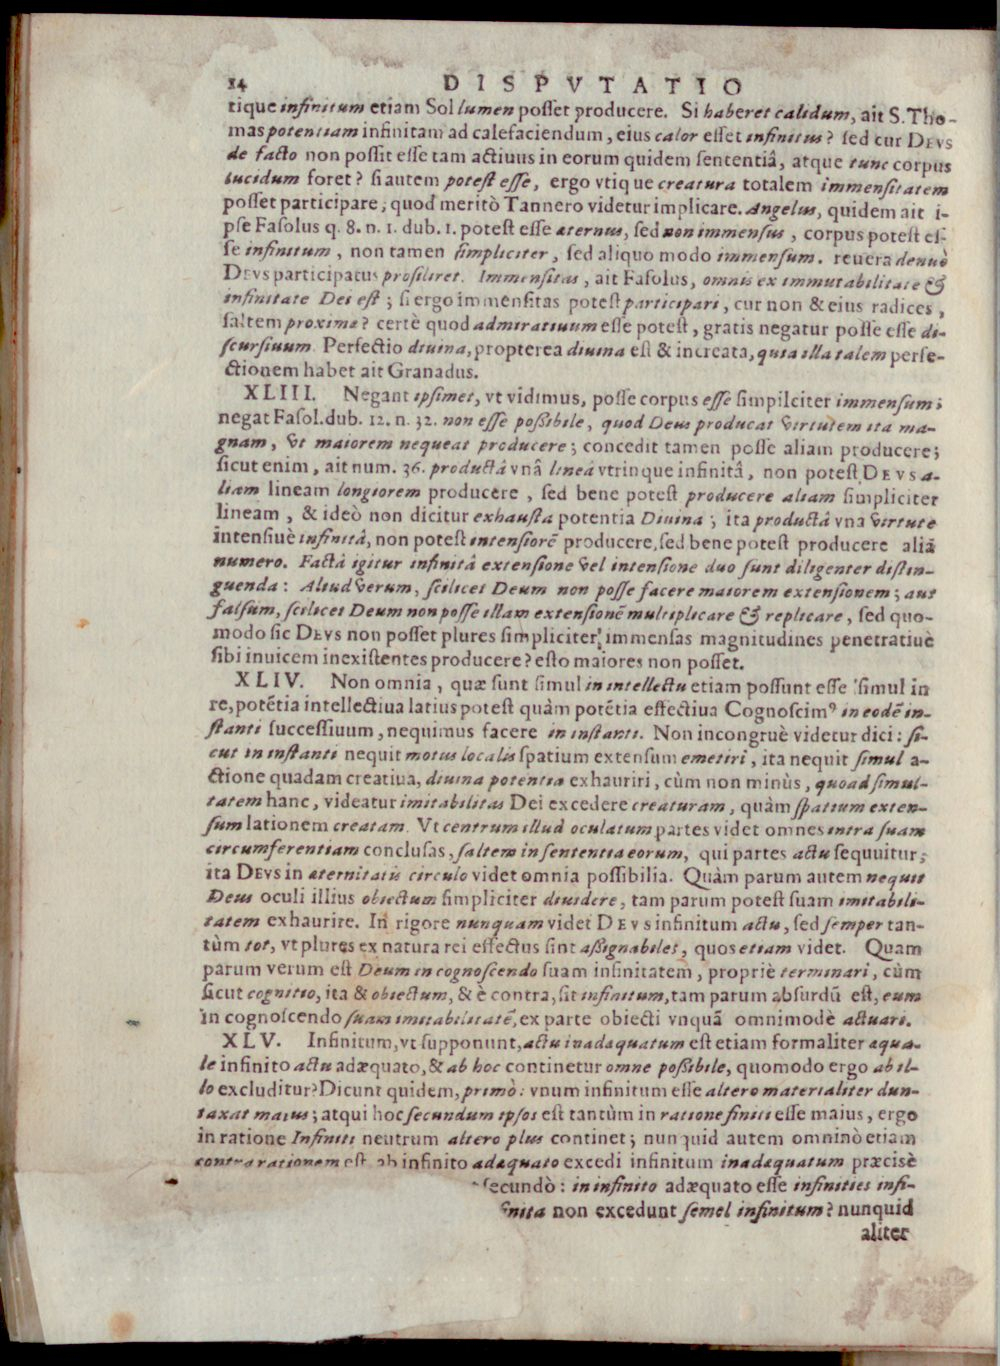 14 DISPVTATIO
tique infinitum etiam Sol lumen posset producere. Si haberet calidum, ait S. Tho-
mas potentiam infinitam ad calefaciendum, eius calor esset infinitus? sed cur DEVS
de facto non possit esse tam actiuus in eorum quidem sententiâ, atque tunc corpus
lucidum foret? si autem potest esse, ergo vtique creatura totalem immensitatem
posset participare, quod meritò Tannero videtur implicare. Angelus, quidem ait i-
pse Fasolus q. 8. n. 1. dub. 1. potest esse æternus, sed non immensus, corpus potest es-
se infinitum, non tamen simpliciter, sed aliquo modo immensum. reuera denuò
DEVS participatus prosiliret. Immensitas, ait Fasolus, omnis ex immutabilitate &
infinitate Dei est; si ergo immensitas potest participari, cur non & eius radices,
saltem proximæ? certè quod admiratiuum esse potest, gratis negatur posse esse di-
scursiuum. Perfectio diuina, propterea diuina est & increata, quia illa talem perfe-
ctionem habet ait Granadus.
XLIII. Negant ipsimet, vt vidimus, posse corpus esse simpilciter immensum;
negat Fasol. dub. 12. n. 32. non esse possibile, quod Deus producat virtutem ita ma-
gnam, vt maiorem nequeat producere; concedit tamen posse aliam producere;
sicut enim, ait num. 36. productâ vnâ lineâ vtrinque infinitâ, non potest DEVS a-
liam lineam longiorem producere, sed bene potest producere aliam simpliciter
lineam, & ideò non dicitur exhausta potentia Diuina; ita productâ vna virtute
intensiuè infinitâ, non potest intensiorē producere, sed bene potest producere aliā
numero. Factâ igitur infinitâ extensione vel intensione duo sunt diligenter distin-
guenda: Aliud verum, scilicet Deum non posse facere maiorem extensionem; aut
falsum, scilicet Deum non posse illam extensionē multiplicare & replicare, sed quo-
modo sic DEVS non posset plures simpliciter immensas magnitudines penetratiuè
sibi inuicem inexistentes producere? esto maiores non posset.
XLIV. Non omnia, quæ sunt simul in intellectu etiam possunt esse simul in
re, potētia intellectiua latius potest quàm potētia effectiua Cognoscimꝰ in eodē in-
stanti successiuum, nequimus facere in instanti. Non incongruè videtur dici: si-
cut in instanti nequit motus localis spatium extensum emetiri, ita nequit simul a-
ctione quadam creatiua, diuina potentia exhauriri, cùm non minùs, quoad simul-
tatem hanc, videatur imitabilitas Dei excedere creaturam, quàm spatium exten-
sum lationem creatam. Vt centrum illud oculatum partes videt omnes intra suam
circumferentiam conclusas, saltem in sententia eorum, qui partes actu sequuitur;
ita DEVS in æternitatis circulo videt omnia possibilia. Quàm parum autem nequit
Deus oculi illius obiectum simpliciter diuidere, tam parum potest suam imitabili-
tatem exhaurire. In rigore nunquam videt DEVS infinitum actu, sed semper tan-
tùm tot, vt plures ex natura rei effectus sint assignabiles, quos etiam videt. Quam
parum verum est Deum in cognoscendo suam infinitatem, propriè terminari, cùm
sicut cognitio, ita & obiectum, & è contra, sit infinitum, tam parum absurdū est, eum
in cognoscendo suam imitabilitatē, ex parte obiecti vnquā omnimodè actuari.
XLV. Infinitum, vt supponunt, actu inadæquatum est etiam formaliter æqua-
le infinito actu adæquato, & ab hoc continetur omne possibile, quomodo ergo ab il-
lo excluditur? Dicunt quidem, primò: vnum infinitum esse altero materialiter dun-
taxat maius; atqui hoc secundum ipsos est tantùm in ratione finiti esse maius, ergo
in ratione Infiniti neutrum altero plus continet; nunquid autem omninò etiam
contra rationem est ab infinito adæquato excedi infinitum inadæquatum præcisè
secundò: in infinito adæquato esse infinities infi-
finita non excedunt semel infinitum? nunquid
aliter